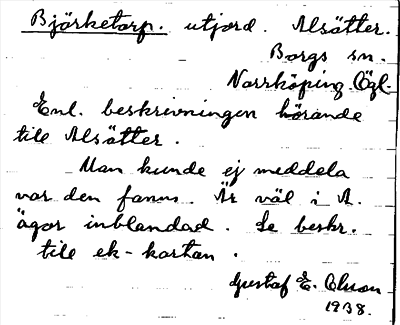 Björketorp. utjord. Alsätter.
Borgs sn.
Norrköping. Ögl.
Enl. beskrivningen hörande
till Alsätter.
Man kunde ej meddela
var den fanns. Är väl i A.
ägor inblandad. Se beskr.
till ek-kartan.
Gustaf E. Olsson
1938.